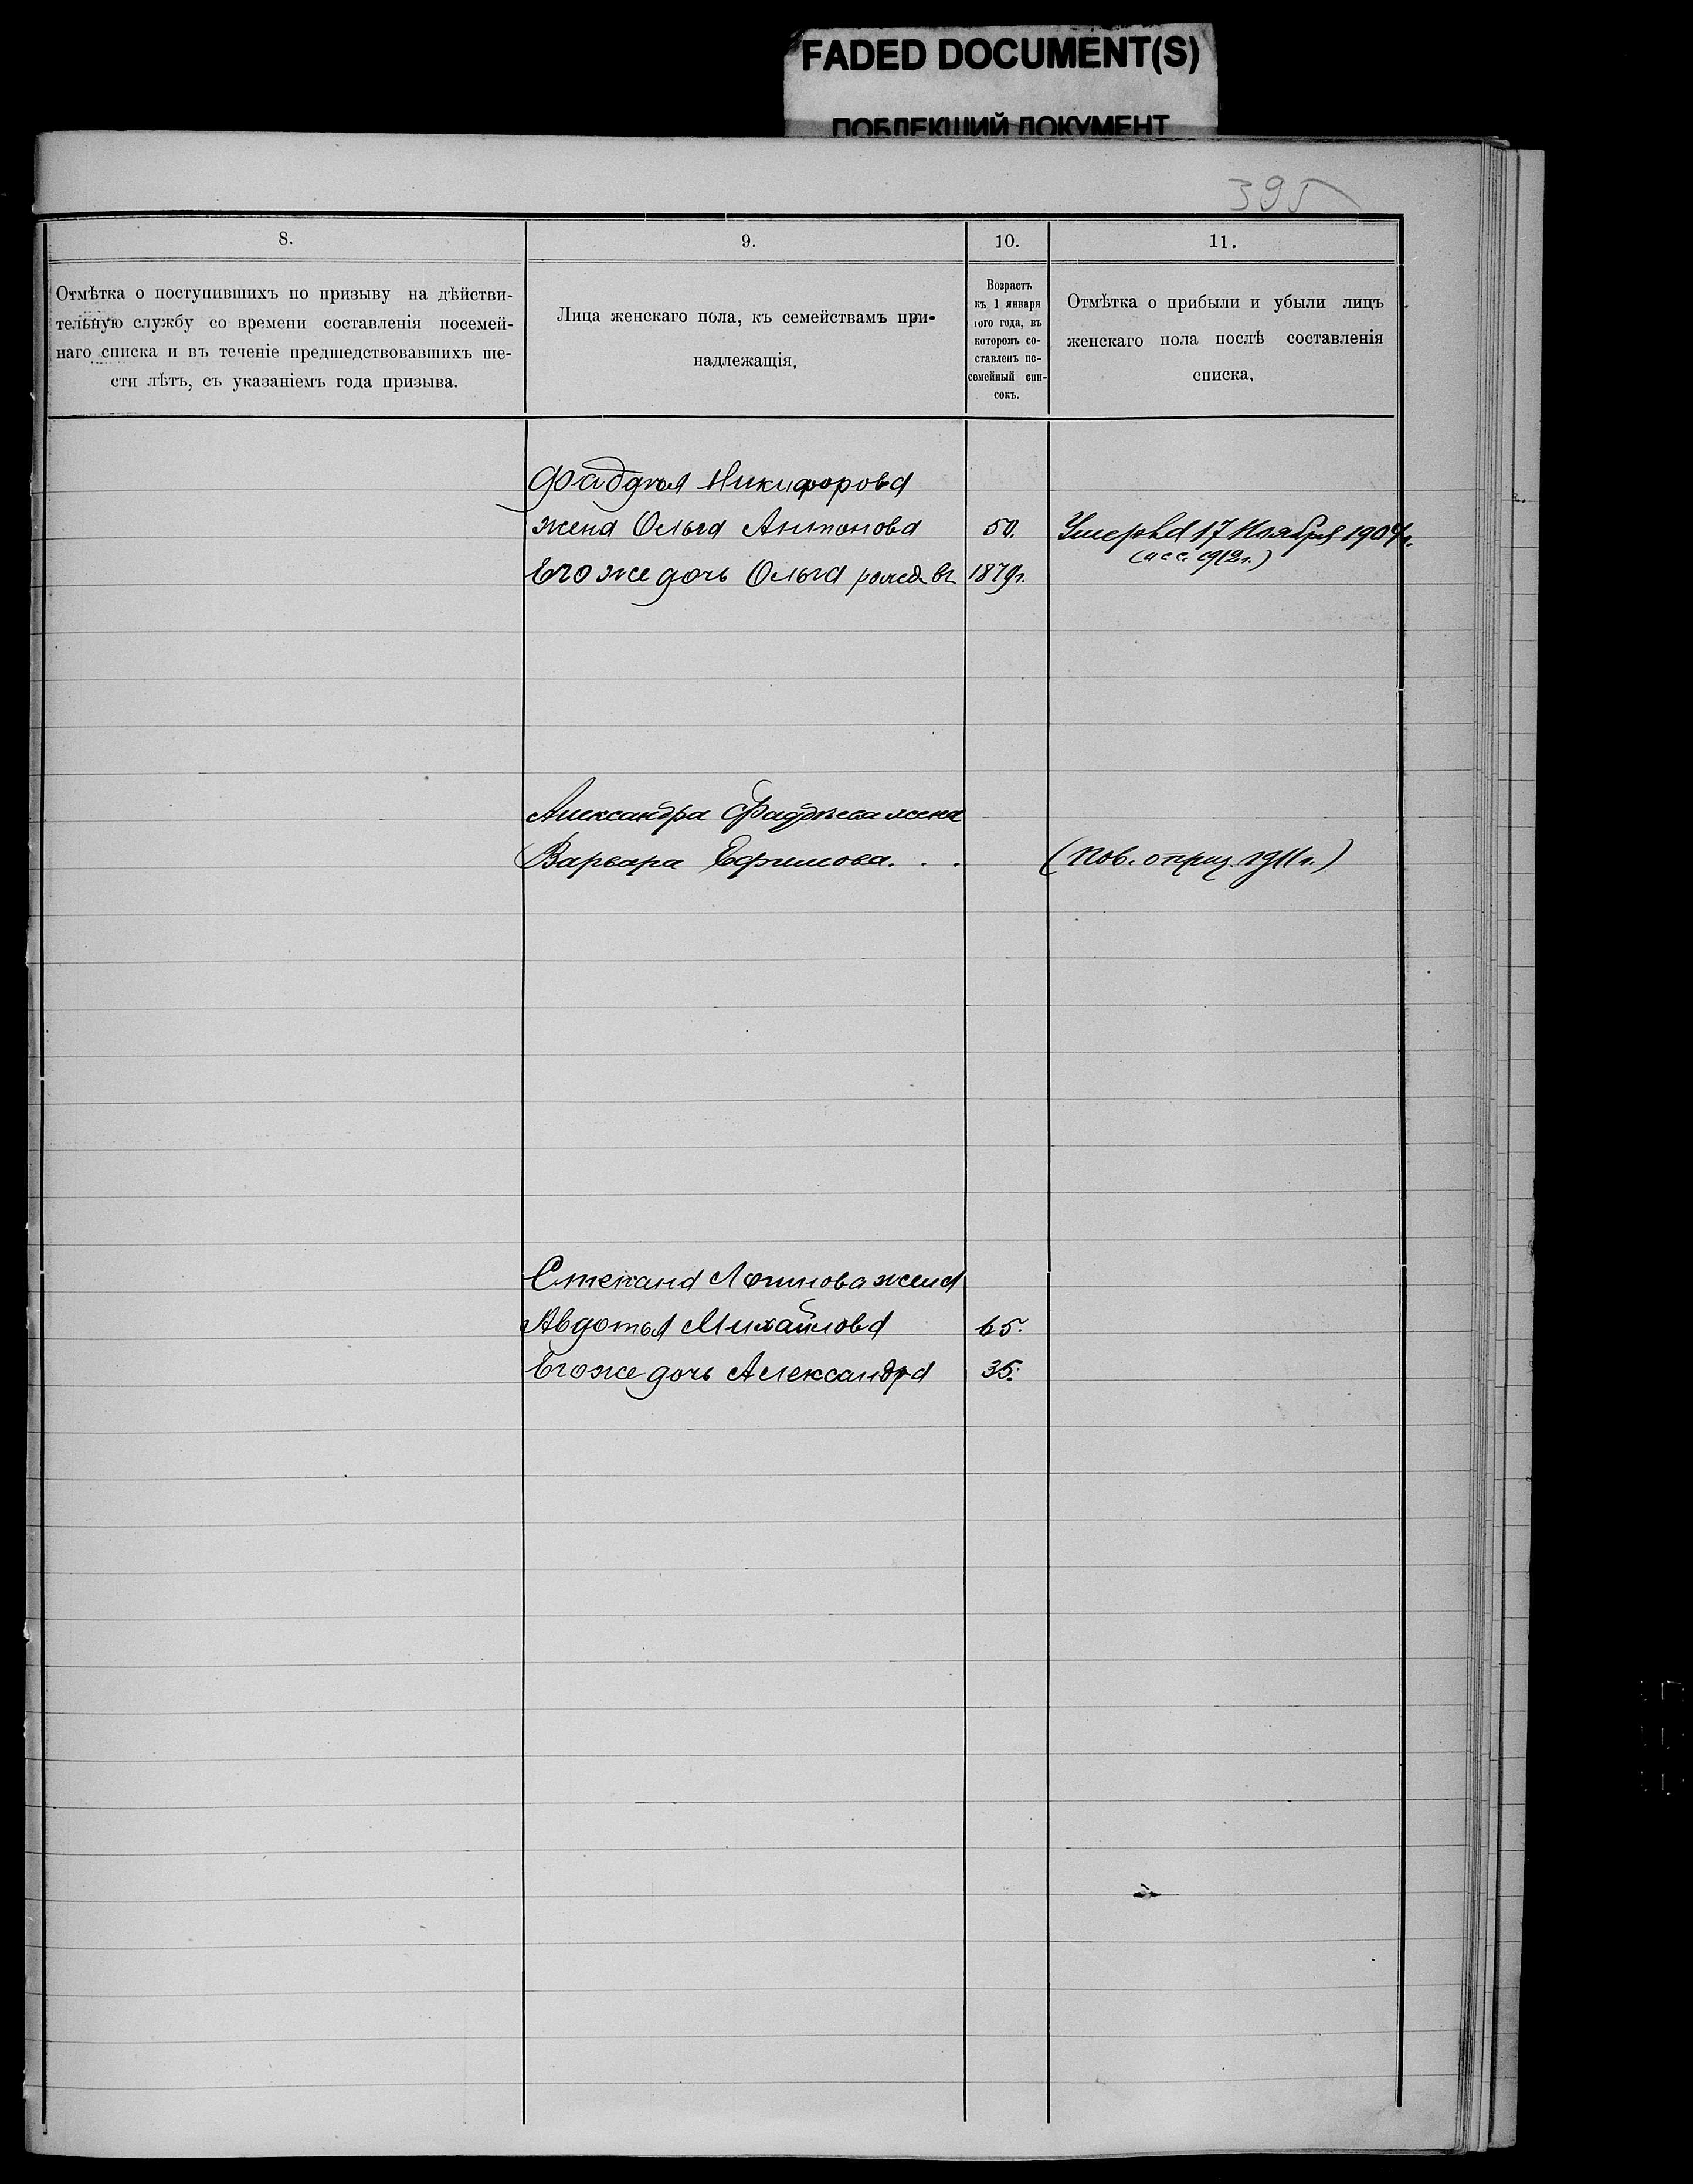 FADED DOCUMENT(S)
ПОБЛЕКШИЙ ДОКУМЕНТ
395
8.
9.
10.
11.
Отмѣтка о поступившихъ по призыву на дѣйстви-
тельную службу со времени составленія посемей-
наго списка и въ теченіе предшедствовавшихъ ше-
сти лѣтъ, съ указаніемъ года призыва.
Лица женскаго пола, къ семействамъ при-
надлежащія,
Возрастъ
къ 1 января
того года, въ
которомъ со-
ставленъ по-
семейный спи-
сокъ.
Отмѣтка о прибыли и убыли лицъ
женскаго пола послѣ составленія
списка,
Фаддѣя Никифорова
жена Ольга Антонова 50. Умерла 17 Ноября 1904г.
(асс. 1912г.)
Его же дочь Ольга рожд. въ 1879г.
Александра Фаддѣева жена
Варвара Ефимова. . . (Пов. о приз. 1911г.)
Степана Логинова жена
Авдотья Михайлова 65.
Его же дочь Александра 35.